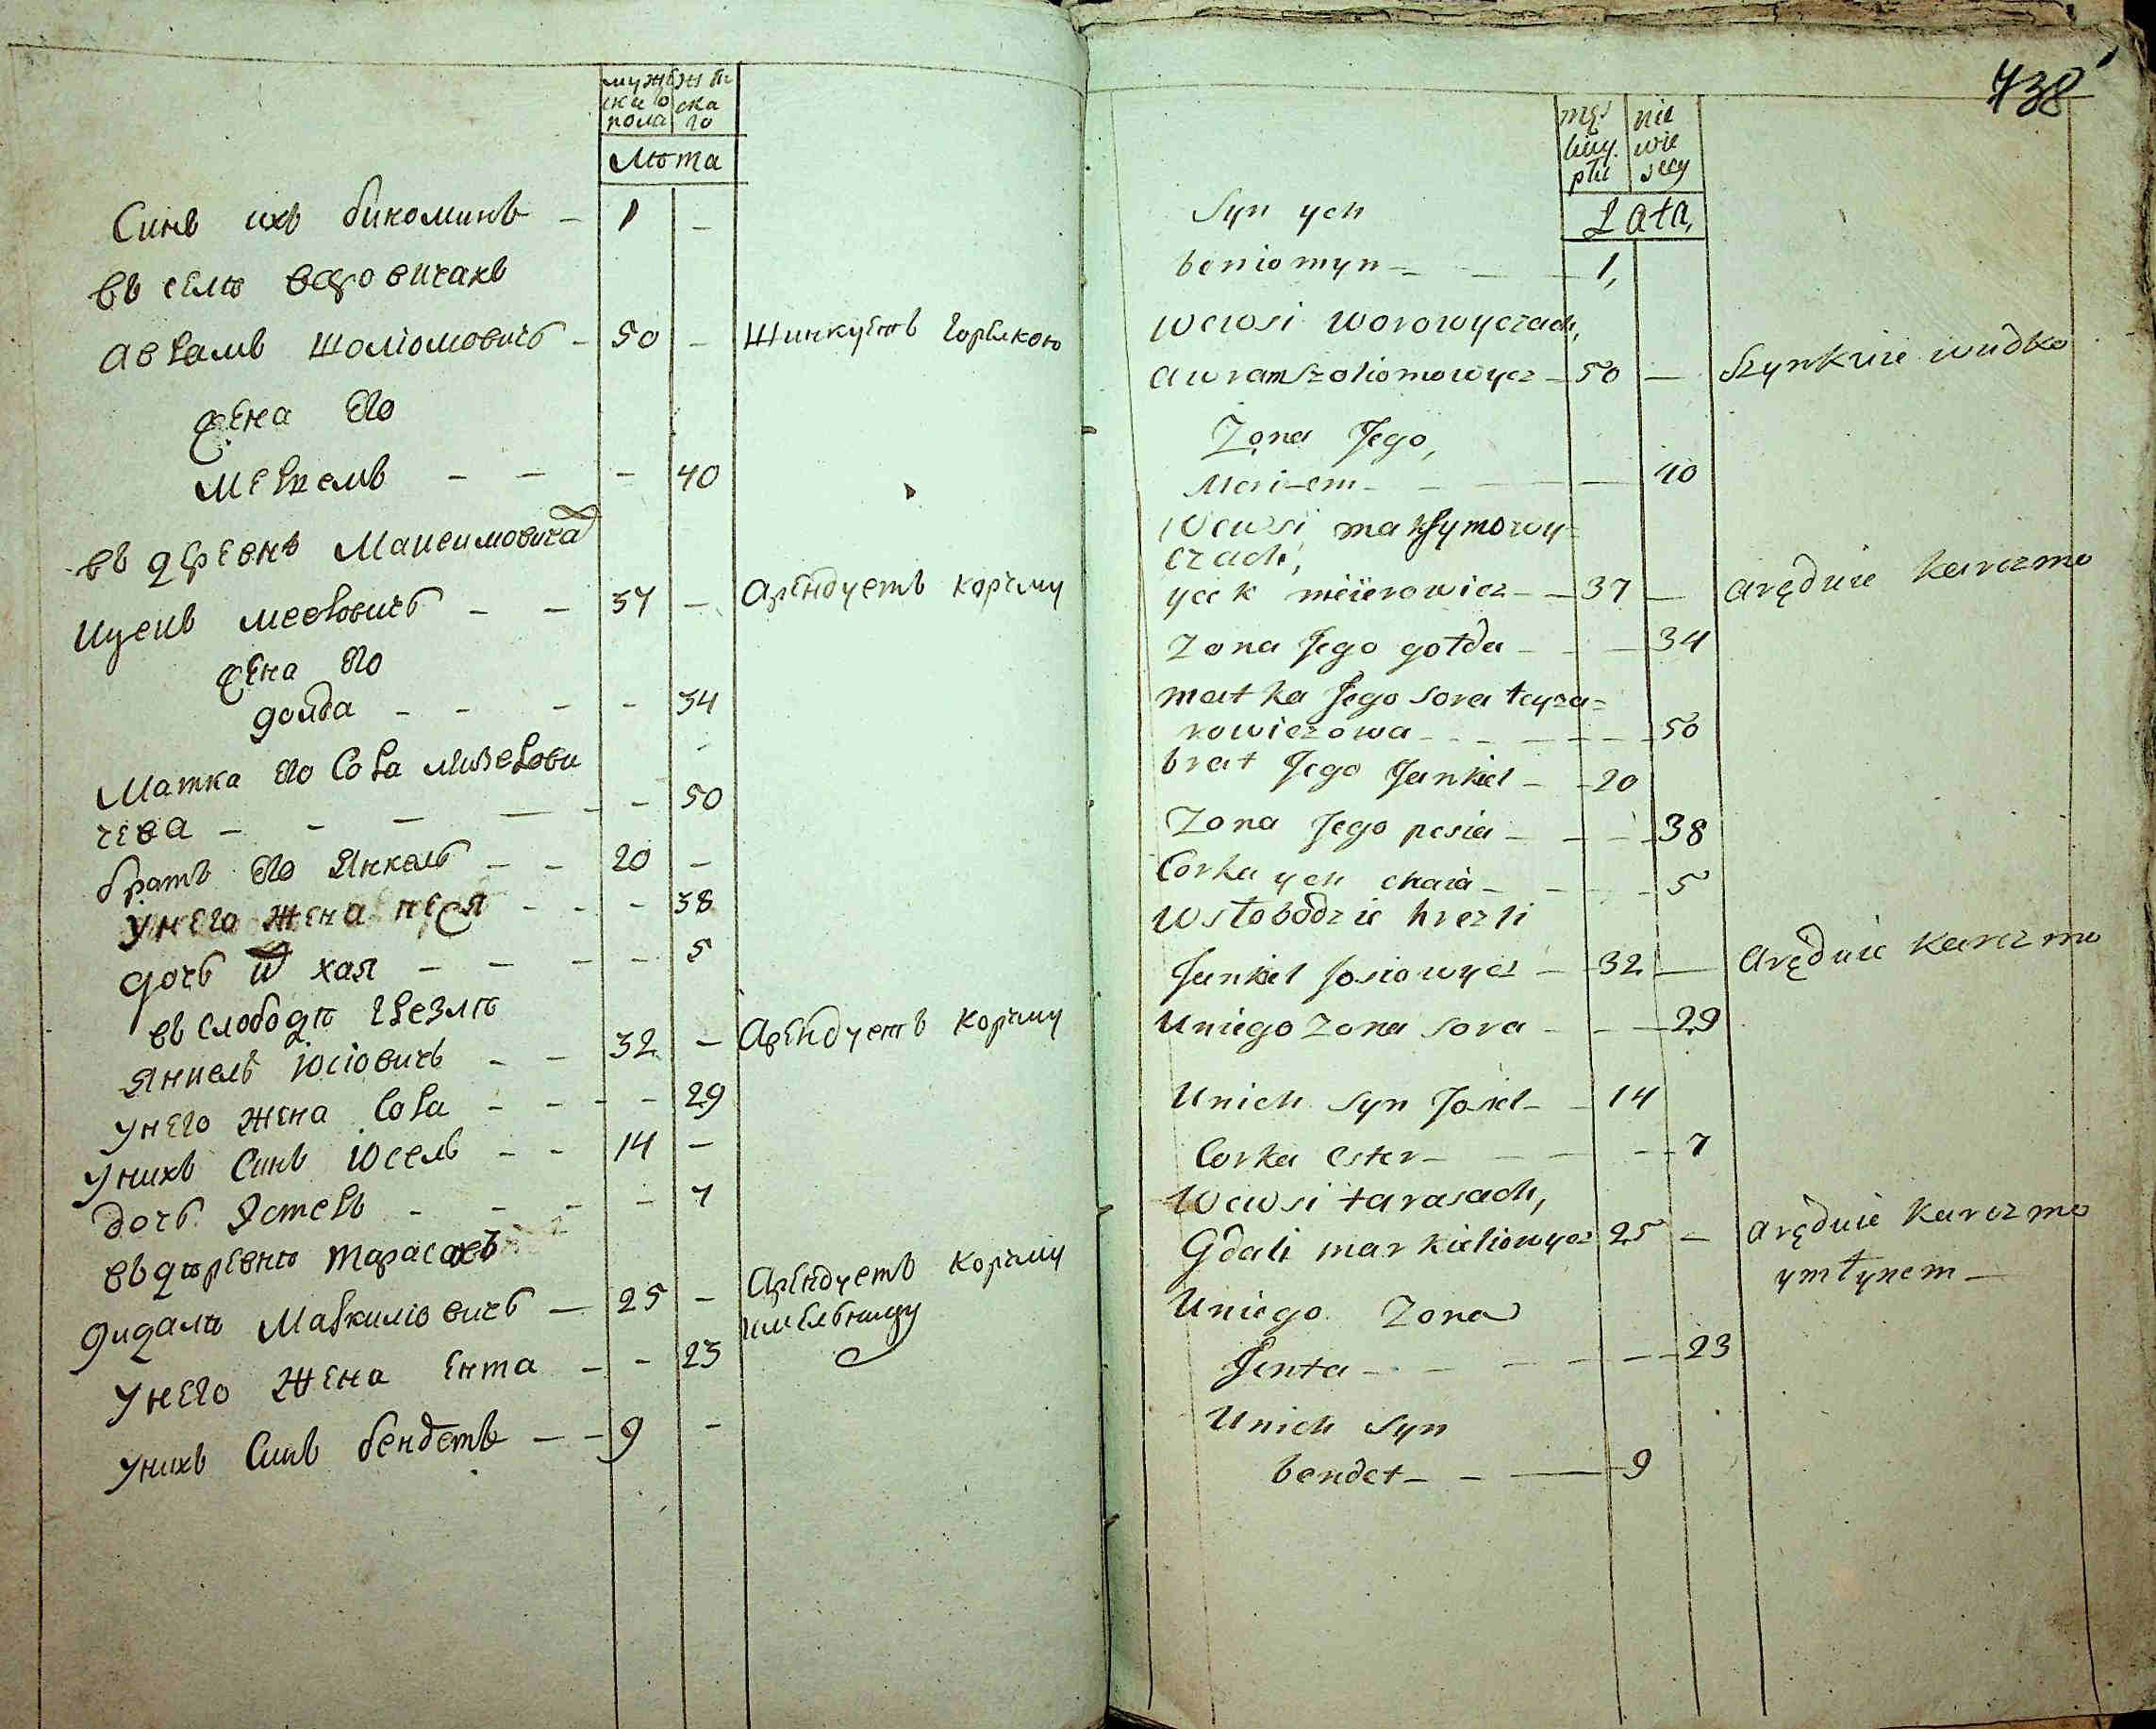 мужескаго женскаго
пола
Лѣта
Синъ ихъ бинюминъ – 1 –
въ селѣ воровичахъ
Аврамъ шоліомовичъ – 50 – Шинкуетъ горѣлкою
жена его
Меріемъ – – – 40
въ деревнѣ Максимовича
Ицекъ мееровичъ – – 37 – Арендуетъ корчму
жена его
голда – – – – 34
Матка его Сора лизерови
чева – – – – – 50
братъ его Янкель – – 20 –
у него жена песя – – – 38
дочь их хая – – – – 5
въ слободѣ грезлѣ
Янкель іосіовичъ – – 32 – Арендуетъ корчму
у него жена Сора – – – – 29
у нихъ Синъ іосель – – 14 –
дочь Эстеръ – – – – 7
въ деревнѣ тарасахъ
Гидалѣ Маркиліовичъ – 25 – Арендуетъ корчму
имельницу
у него жена Ента – – 23
у нихъ Синъ бендетъ – – 9 –
738
męs
kiey
płci
nie
wie
scey
Lata,
Syn ych
beniomyn – – 1,
Wewsi worowyczach,
awram szoliomowycz – 50 – Szynkuie wudko
Zona Jego,
Meri-em – – – – 40
Wewsi maksymowy=
czach,
ycek meierowicz – – 37 – aręduie karczmo
Zona Jego gołda – – – 34
matka Jego sora łeyza=
rowiczowa – – – – – 50
brat Jego Jankiel – – 20
Zona Jego pesia – – – 38
Corka ych chaia – – – 5
Wsłobodzie hrezli
Jankiel Josiowycz – 32 – aręduie karczmo
Uniego Zona sora – – – 29
Unich syn Josiel – – 14
Corka ester – – – – 7
Wewsi tarasach,
Gdali markieliowycz 25 – aręduie karczmo
ymłynem –
Uniego Zona
Jenta – – – – – – 23
Unich syn
bendet – – – 9